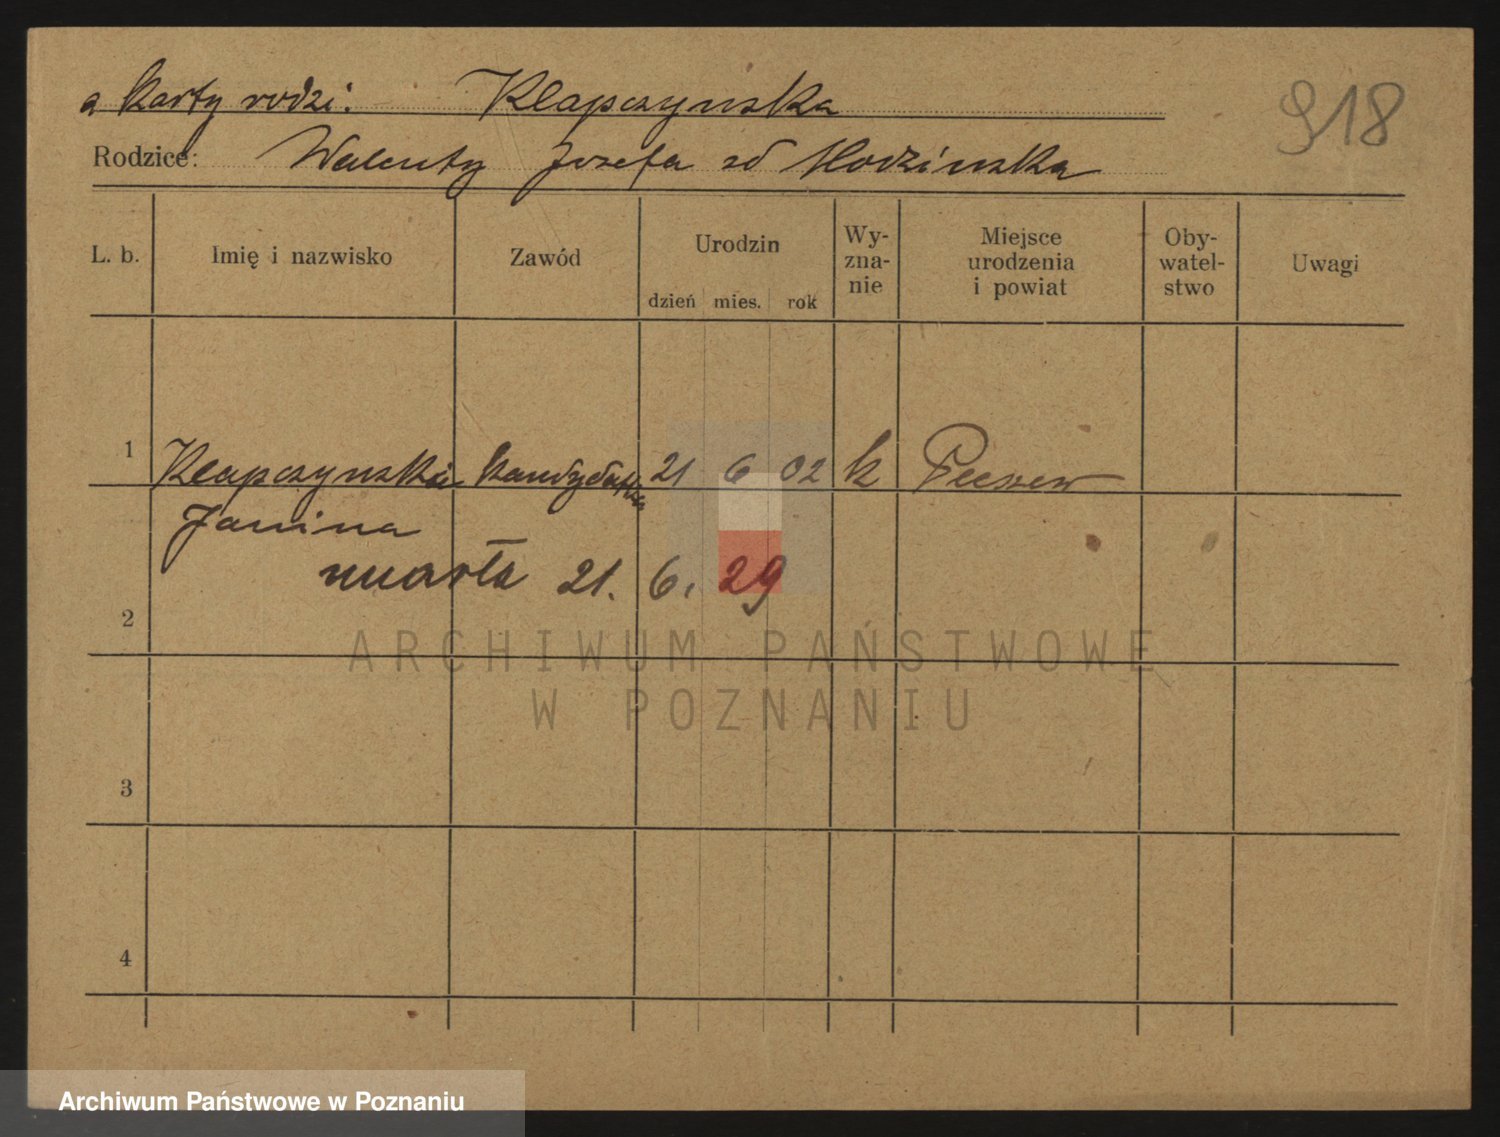 z karty rodzi. Klapczynska
918
Rodzice: Walenty Józefa zd Modzinska
L. b. Imię i nazwisko Zawód Urodzin dzień mies. rok Wy-znanie Miejsce urodzenia i powiat Oby-watel-stwo Uwagi
1 Klapczynska kandydatka 21 6 02 k Pleszew
Janina
zmarła 21. 6. 29
2
ARCHIWUM PAŃSTWOWE
W POZNANIU
3
4
Archiwum Państwowe w Poznaniu